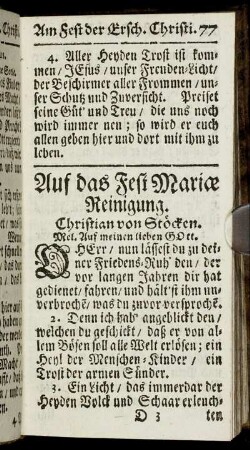 Am Fest der Ersch. Christi. 77
4. Aller Heyden Trost ist kom-
men / JEsus / unser Freuden-Licht /
der Beschirmer aller Frommen / un-
ser Schutz und Zuversicht. Preiset
seine Güt' und Treu / die uns noch
wird immer neu; so wird er euch
allen geben hier und dort mit ihm zu
leben.
Auf das Fest Mariæ
Reinigung.
Christian von Stöcken.
Mel. Auf meinen lieben GOtt.
OHErr / nun lässest du zu dei-
ner Friedens-Ruh' den / der
vor langen Jahren dir hat
gedienet / fahren / und hält'st ihm un-
verbrochē / was du zuvor versprochē.
2. Denn ich hab' angeblickt den /
welchen du geschickt / daß er von al-
lem Bösen soll alle Welt erlösen; ein
Heyl der Menschen-Kinder / ein
Trost der armen Sünder.
3. Ein Licht / das immerdar der
Heyden Volck und Schaar erleuch-
D 3 ten